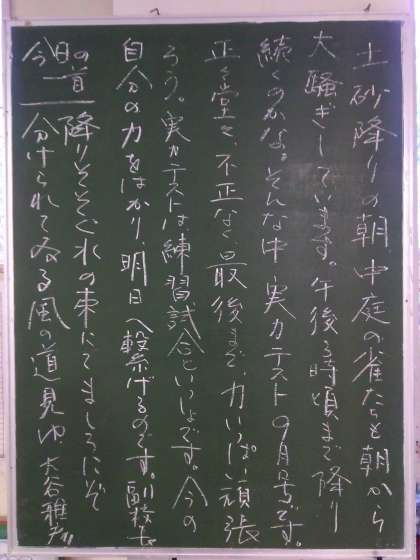 土砂降りの朝、中庭の雀たちも朝から
大騒ぎしています。午後3時頃まで降り
続くのかな。そんな中、実力テスト9月号です。
正々堂々、不正なく最後まで、力いっぱい頑張
ろう。実力テストは練習試合といっしょです。今の
自分の力をはかり、明日へ繋げるのです。副校長
今日の一首 降りそそぐ水の束にてましろにぞ
分けられてゐる風の道見ゆ 大谷雅彦